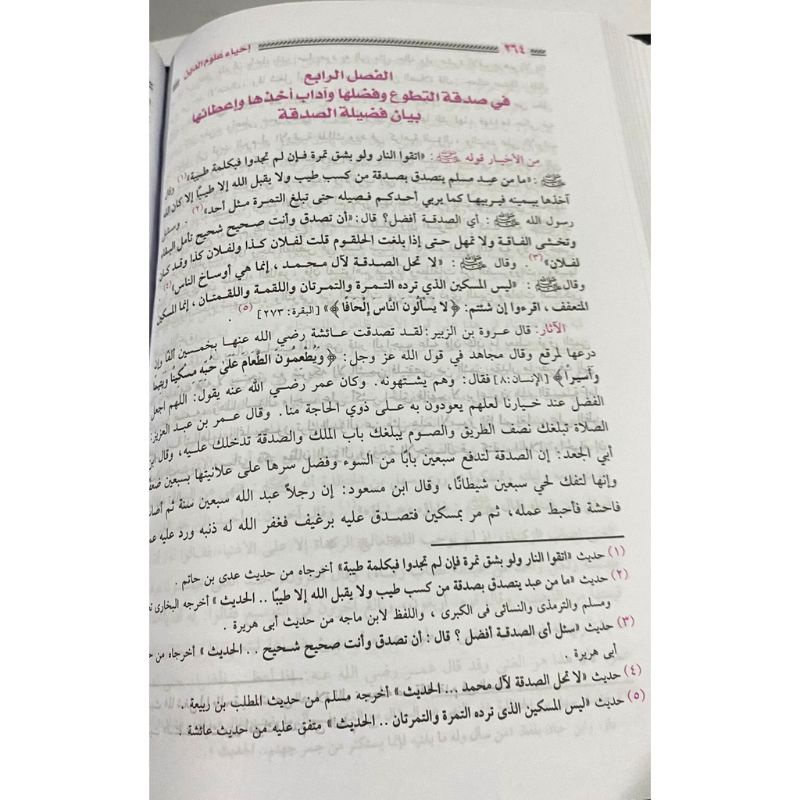 ٢٦٤
إحياء علوم الدين
الفصل الرابع
في صدقة التطوع وفضلها وآداب أخذها وإعطائها
بيان فضيلة الصدقة
من الأخبار قوله ﷺ: «اتقوا النار ولو بشق تمرة فإن لم تجدوا فبكلمة طيبة» (١) وقال
ﷺ: «ما من عبد مسلم يتصدق بصدقة من كسب طيب ولا يقبل الله إلا طيبًا إلا كان الله
آخذها بيمينه فيربيها كما يربي أحدكم فصيله حتى تبلغ التمرة مثل أحد» (٢). وسئل
رسول الله ﷺ: أي الصدقة أفضل؟ قال: «أن تصدق وأنت صحيح شحيح تأمل البقاء
وتخشى الفاقة ولا تمهل حتى إذا بلغت الحلقوم قلت لفلان كذا ولفلان كذا وقد كان
لفلان» (٣). وقال ﷺ: «لا تحل الصدقة لآل محمد، إنما هي أوساخ الناس» (٤)
وقال ﷺ: «ليس المسكين الذي ترده التمرة والتمرتان واللقمة واللقمتان، إنما المسكين
المتعفف، اقرءوا إن شئتم: ﴿لا يَسْأَلُونَ النَّاسَ إِلْحَافًا﴾» [البقرة: ٢٧٣] (٥).
الآثار: قال عروة بن الزبير: لقد تصدقت عائشة رضي الله عنها بخمسين ألفًا وإن
درعها لمرقع وقال مجاهد في قول الله عز وجل: ﴿وَيُطْعِمُونَ الطَّعَامَ عَلَىٰ حُبِّهِ مِسْكِينًا وَيَتِيمًا
وَأَسِيرًا﴾ [الإنسان: ٨] فقال: وهم يشتهونه. وكان عمر رضي الله عنه يقول: اللهم اجعل
الفضل عند خيارنا لعلهم يعودون به على ذوي الحاجة منا. وقال عمر بن عبد العزيز:
الصلاة تبلغك نصف الطريق والصوم يبلغك باب الملك والصدقة تدخلك عليه، وقال ابن
أبي الجعد: إن الصدقة لتدفع سبعين بابًا من السوء وفضل سرها على علانيتها بسبعين ضعفًا
وإنها لتفك لحي سبعين شيطانًا، وقال ابن مسعود: إن رجلاً عبد الله سبعين سنة ثم أصاب
فاحشة فأحبط عمله، ثم مر بمسكين فتصدق عليه برغيف فغفر الله له ذنبه ورد عليه عمل
(١) حديث «اتقوا النار ولو بشق تمرة فإن لم تجدوا فبكلمة طيبة» أخرجاه من حديث عدى بن حاتم.
(٢) حديث «ما من عبد يتصدق بصدقة من كسب طيب ولا يقبل الله إلا طيبًا .. الحديث» أخرجه البخارى
ومسلم والترمذى والنسائى فى الكبرى، واللفظ لابن ماجه من حديث أبى هريرة.
(٣) حديث «سئل أى الصدقة أفضل؟ قال: أن تصدق وأنت صحيح شحيح .. الحديث» أخرجاه من
أبى هريرة.
(٤) حديث «لا تحل الصدقة لآل محمد ... الحديث» أخرجه مسلم من حديث المطلب بن ربيعة.
(٥) حديث «ليس المسكين الذى ترده التمرة والتمرتان .. الحديث» متفق عليه من حديث عائشة.